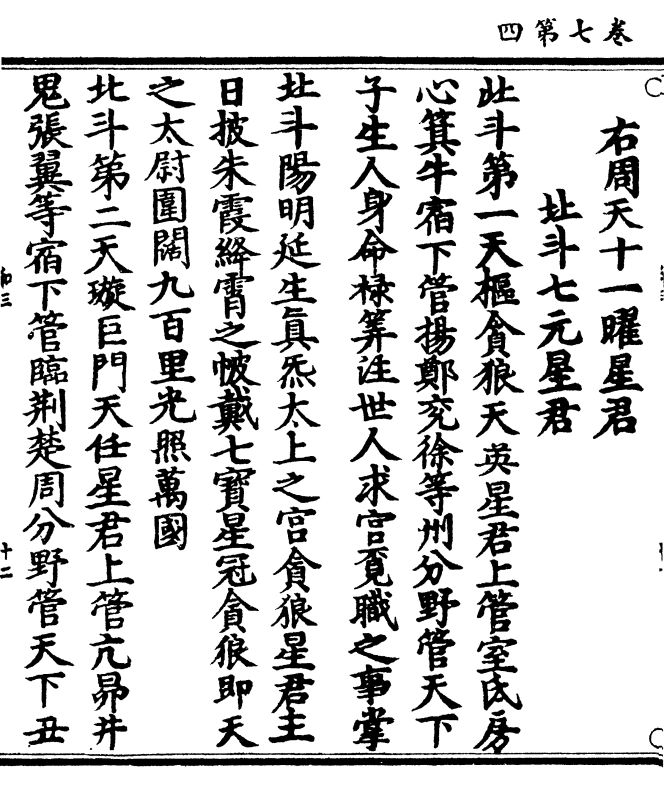 卷七第四
右周天十一曜星君
北斗七元星君
北斗第一天樞貪狼天英星君上管室氐房
心箕牛宿下管揚鄭兗徐等州分野管天下
子生人身命祿筭注世人求官覓職之事掌
北斗陽明延生真炁太上之宮貪狼星君主
日披朱霞絳霄之帔戴七寶星冠貪狼即天
之太尉圍闊九百里光照萬國
北斗第二天璇巨門天任星君上管亢昴井
鬼張翼等宿下管臨荆楚周分野管天下丑
十二